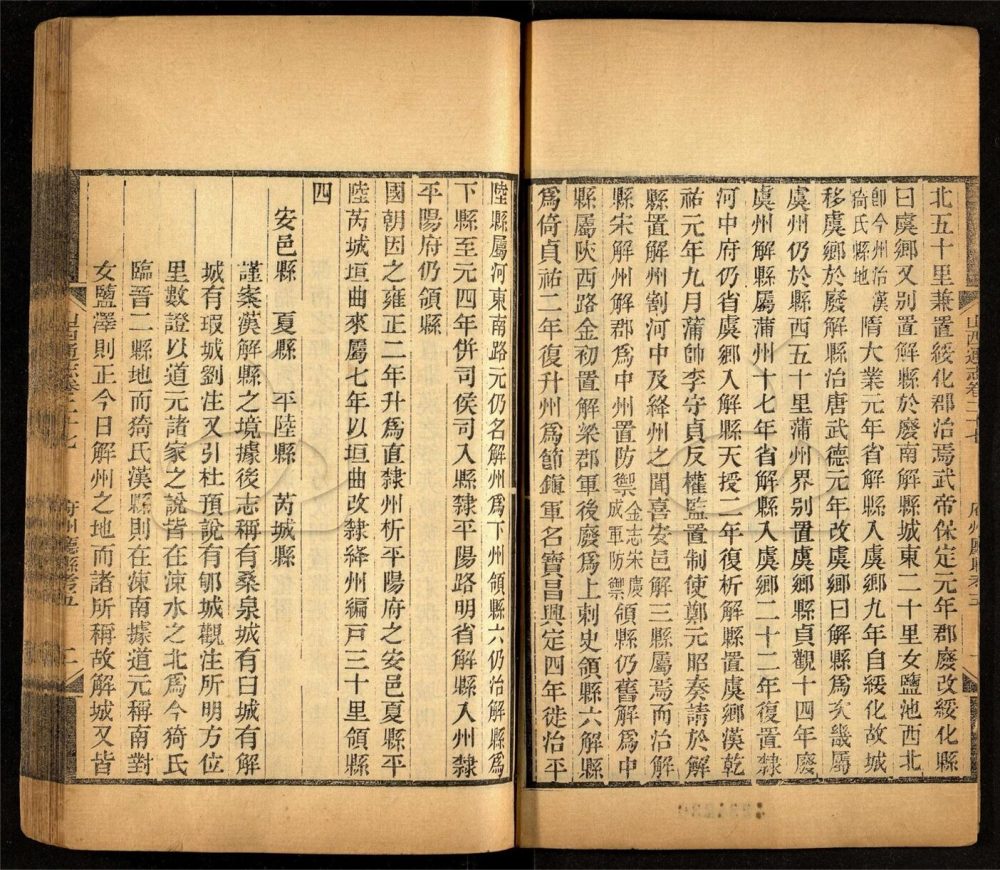 北五十里兼置綏化郡治焉武帝保定元年郡廢改綏化縣
曰虞鄉又別置解縣於廢南解縣城東二十里女鹽池西北
卽今州治漢猗氏縣地 隋大業元年省解縣入虞鄉九年自綏化故城
移虞鄉於廢解縣治唐武德元年改虞鄉曰解縣爲次畿屬
虞州仍於縣西五十里蒲州界別置虞鄉縣貞觀十四年廢
虞州解縣屬蒲州十七年省解縣入虞鄉二十二年復置隸
河中府仍省虞鄉入解縣天授二年復析解縣置虞鄉漢乾
祐元年九月蒲帥李守貞反權監置制使鄭元昭奏請於解
縣置解州割河中及絳州之聞喜安邑解三縣屬焉而治解
縣宋解州解郡爲中州置防禦 金志宋慶成軍防禦 領縣仍舊解爲中
縣屬陝西路金初置解梁郡軍後廢爲上刺史領縣六解縣
爲倚貞祐二年復升州爲節鎭軍名寶昌興定四年徙治平
陸縣屬河東南路元仍名解州爲下州領縣六仍治解縣爲
下縣至元四年併司侯司入縣隸平陽路明省解縣入州隸
平陽府仍領縣
國朝因之雍正二年升爲直隸州析平陽府之安邑夏縣平
陸芮城垣曲來屬七年以垣曲改隸絳州編戸三十里領縣
四
安邑縣 夏縣 平陸縣 芮城縣
謹案漢解縣之境據後志稱有桑泉城有臼城有解
城有瑕城劉注又引杜預說有郇城觀注所明方位
里數證以道元諸家之說皆在涑水之北爲今猗氏
臨晉二縣地而猗氏漢縣則在涑南據道元稱南對
女鹽澤則正今日解州之地而諸所稱故解城又皆
山西通志卷二十七
府州廳縣考五
二